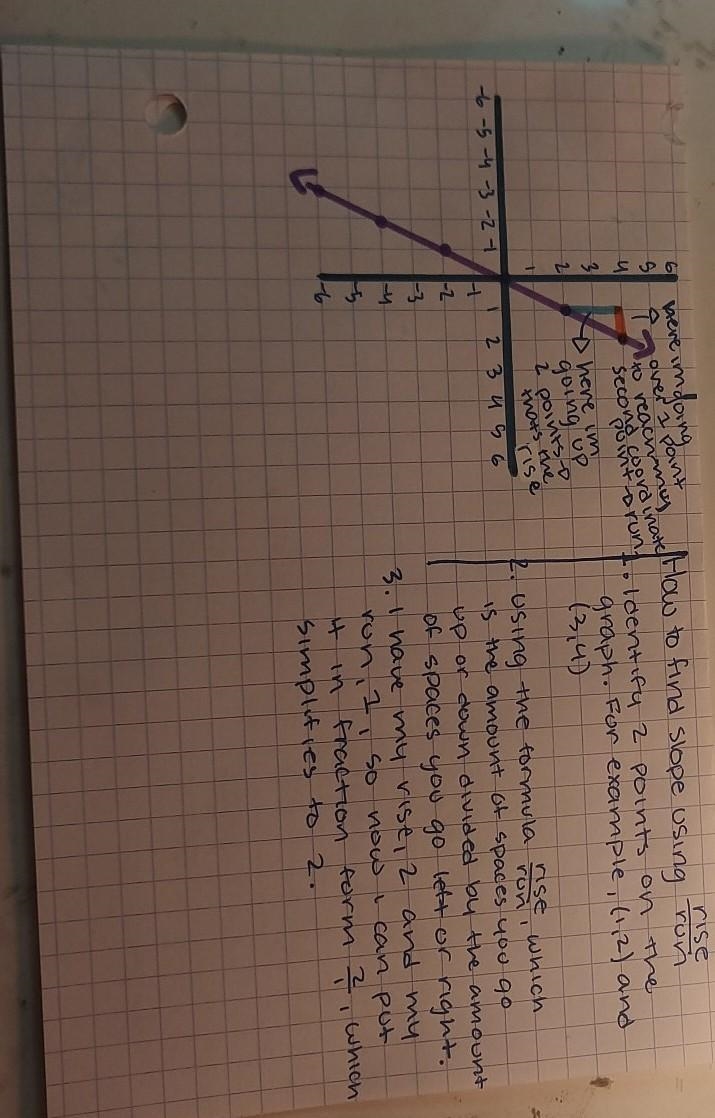 here im going
over 1 point
to reach my
second coordinate
point → run
here im
going up
2 points →
thats the
rise
6
5
4
3
2
1
-6 -5 -4 -3 -2 -1 1 2 3 4 5 6
-1
-2
-3
-4
-5
-6
How to find slope using rise/run
1. Identify 2 points on the
graph. For example, (1,2) and
(2,4)
2. Using the formula rise/run, which
is the amount of spaces you go
up or down divided by the amount
of spaces you go left or right.
3. I have my rise, 2 and my
run, 1, so now i can put
it in fraction form 2/1, which
simplifies to 2.